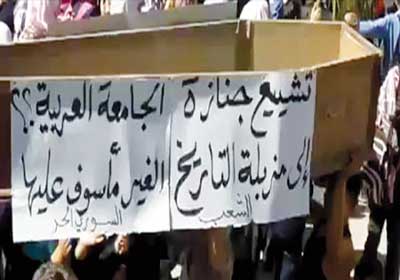 تشييع جنازة الجامعة العربية؟؟
إلى مزبلة التاريخ الغير مأسوف عليها
الشعب السوري الحر